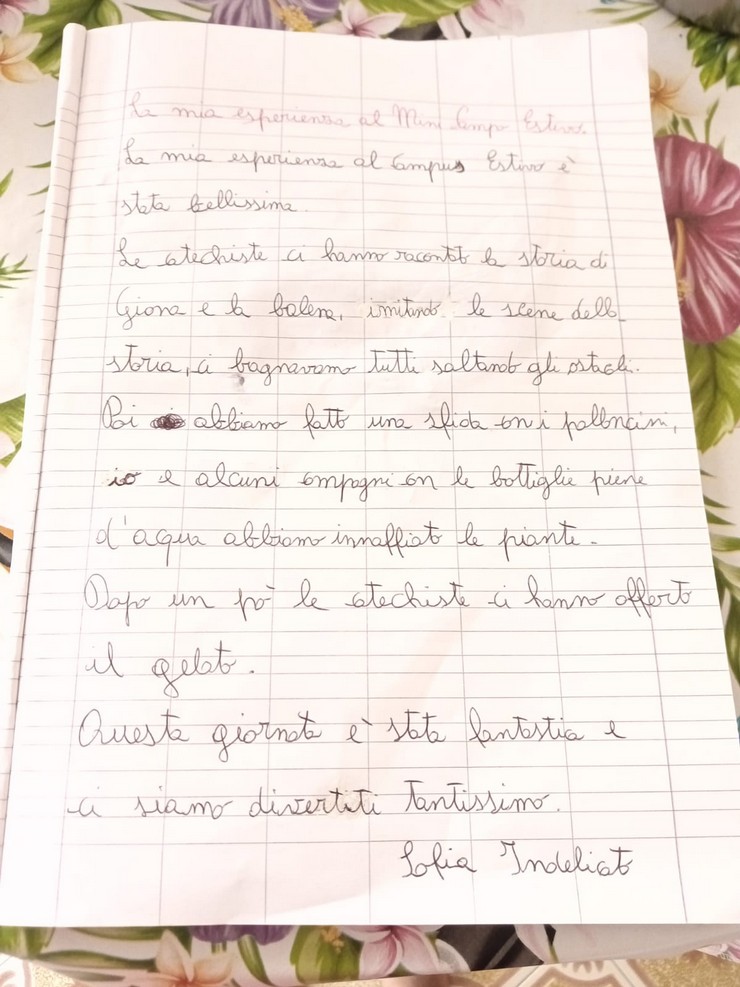 La mia esperienza al Mini Campo Estivo.
La mia esperienza al Campus Estivo è
stata bellissima.
Le catechiste ci hanno raccontato la storia di
Giona e la balena, imitando le scene della
storia, ci bagnavamo tutti saltando gli ostacoli.
Poi abbiamo fatto una sfida con i palloncini,
io e alcuni compagni con le bottiglie piene
d'acqua abbiamo innaffiato le piante.
Dopo un pò le catechiste ci hanno offerto
il gelato.
Questa giornata è stata fantastica e
ci siamo divertiti tantissimo.
Sofia Indelicato